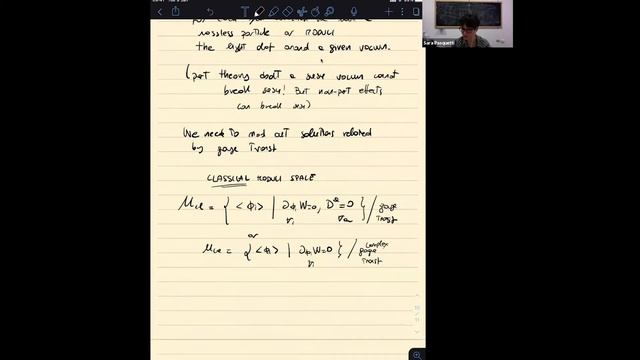 massless particle or MODULI
the light dof around a given vacuum.
(pert theory about a susy vacuum cannot
break susy! But non-pert effects
can break susy)
We need to mod out solutions related
by gauge transf
CLASSICAL MODULI SPACE
M_cl = { <Φi> | ∂Φi W=0, D^a=0 } / gauge transf
∀i ∀a
or
M_cl = { <Φi> | ∂Φi W=0 } / complex gauge transf
∀i
Sara Pasquetti